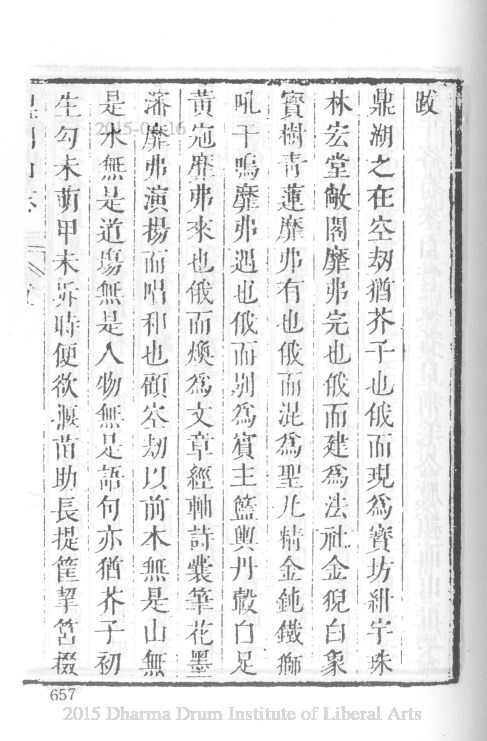 跋
鼎湖之在空刼猶芥子也俄而現為寶坊紺宇珠
林宏堂敞閣靡弗完也俄而建為法社金猊白象
寶樹青蓮靡弗有也俄而混為聖凡精金鈍鐵獅
吼干鳴靡弗遇也俄而別為賓主籃輿丹轂白足
黃冠靡弗來也俄而煥為文章經軸詩囊筆花墨
瀋靡弗演楊而唱和也顧空刼以前本無是山無
是水無是道塲無是人物無是語句亦猶芥子初
生勾未萌甲未坼時便欲揠苗助長提筐挈筥掇
2015-04-16
657
2015 Dharma Drum Institute of Liberal Arts